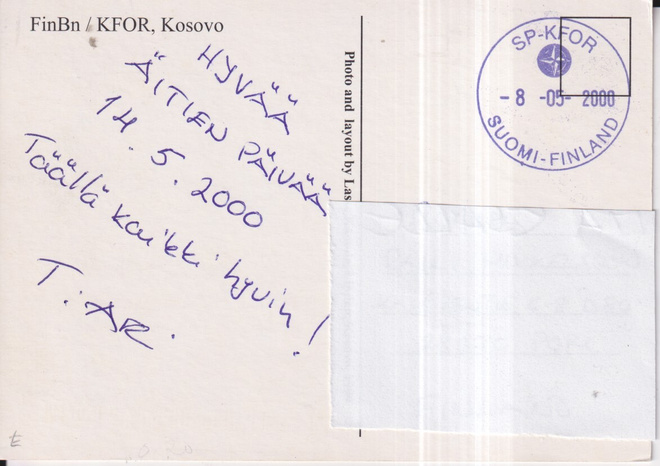 FinBn / KFOR, Kosovo
HYVÄÄ
ÄITIEN PÄIVÄÄ
14.5.2000
Täällä kaikki hyvin!
T. AR.
Photo and layout by Las
SP-KFOR
- 8 -05- 2000
SUOMI-FINLAND